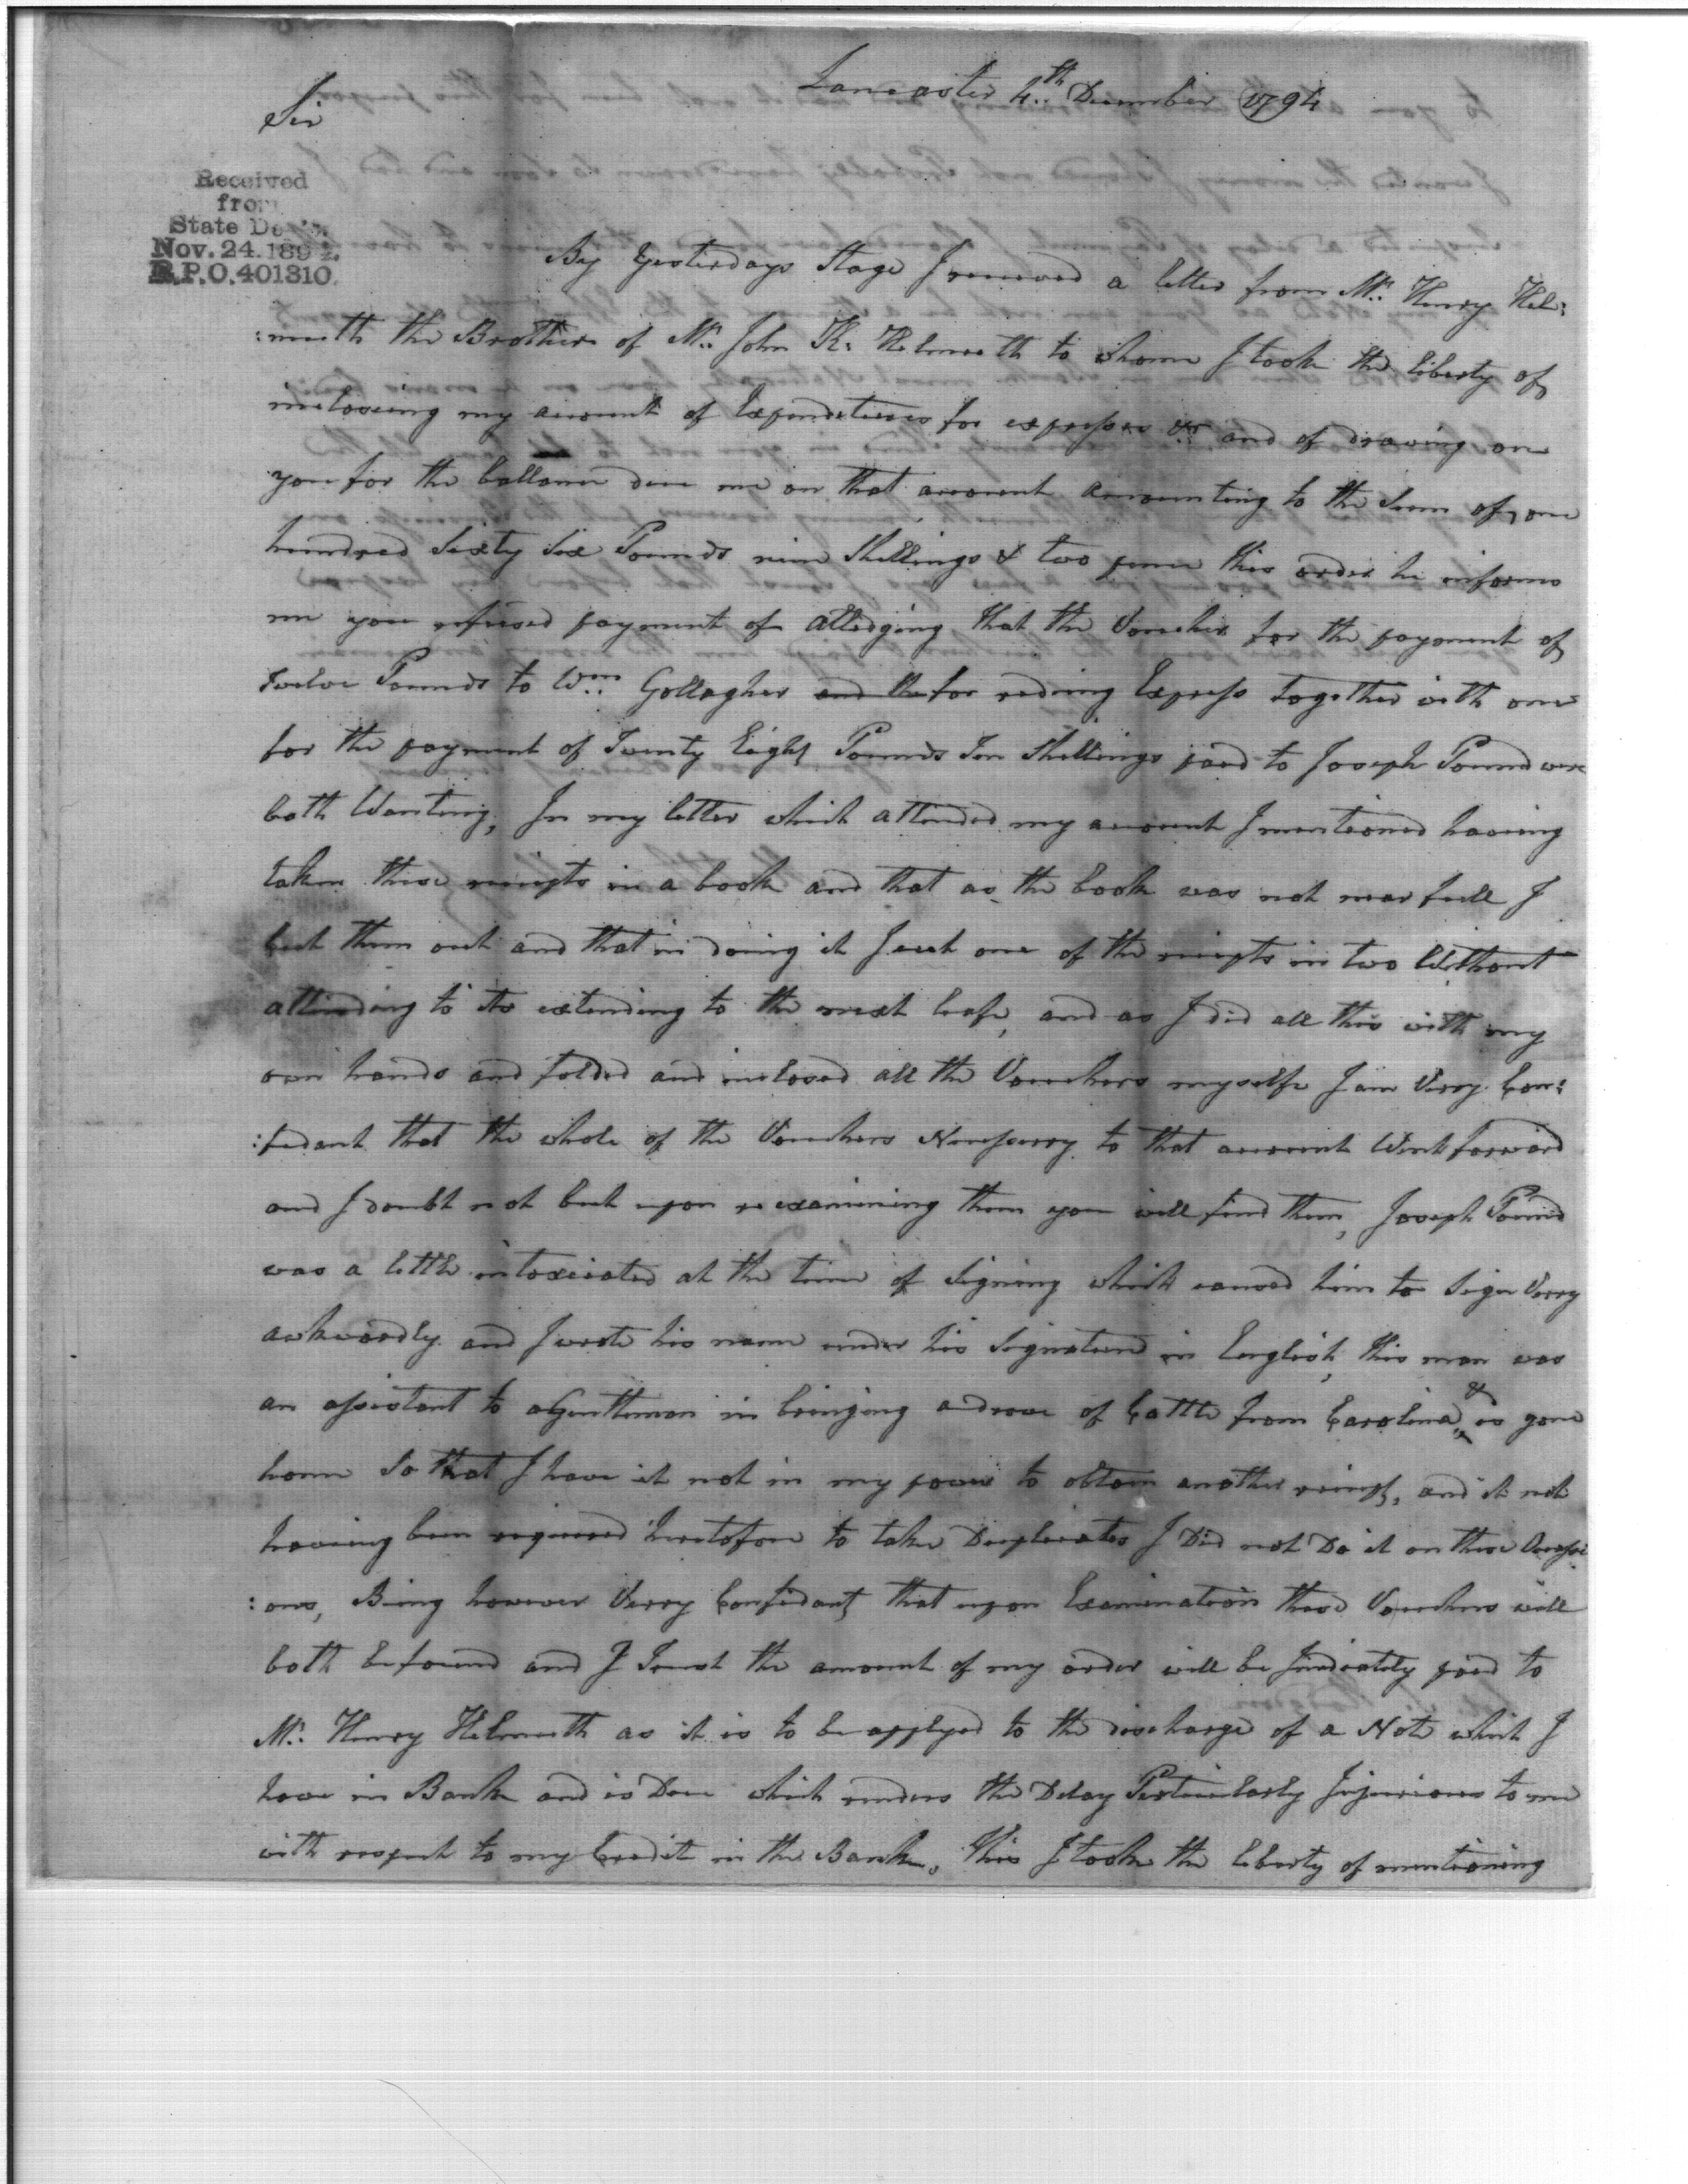 Lancaster 4th December 1794
Sir
Received
from
State Dept.
Nov. 24. 1892.
R.P.O. 401310.
By Yesterdays Stage I received a letter from Mr. Henry Hel:
:muth the Brother of Mr. John K. Helmuth to whome I took the liberty of
inclosing my account of Expenditures for expresses &c and of drawing on
you for the ballance due me on that account amounting to the Sum of one
hundred Sixty Six Pounds nine Shillings & two pence this order he informs
me you refused payment of alledging that the Voucher for the payment of
twelve Pounds to Wm. Gollagher and the for rideing Express together with one
for the payment of Twenty Eight Pounds Ten Shillings paid to Joseph Pound were
both Wanting, In my letter which attended my account I mentioned having
taken those receipts in a book and that as the book was not near full I
cut them out and that in doing it I cut one of the receipts in two Without
attending to its extending to the next leafe, and as I did all this with my
own hands and folded and inclosed all the Vouchers myselfe I am Verry Con:
:fedant that the whole of the Vouchers Nessesary to that account Went forward
and I doubt not but upon reexamining them you will find them, Joseph Pound
was a little intoxicated at the time of Signing which caused him to Sign Verry
awkwardly and I wrote his name under his Signature in English, this man was
an assistant to a Gentleman in bringing a drove of Cattle from Carolina, & is gone
home So that I have it not in my power to obtain another receipt, and it not
having been required heretofore to take Duplicates I Did not Do it on these Occasi
:ons, Being however Verry Confidant that upon Examination those Vouchers will
both be found and I Trust the amount of my order will be Imdeatly paid to
Mr. Henry Helmuth as it is to be applyed to the discharge of a Note which I
have in Bank and is Due which renders the Delay Perticularly Injurious to me
with respect to my Credit in the Bank. This I took the liberty of mentioning